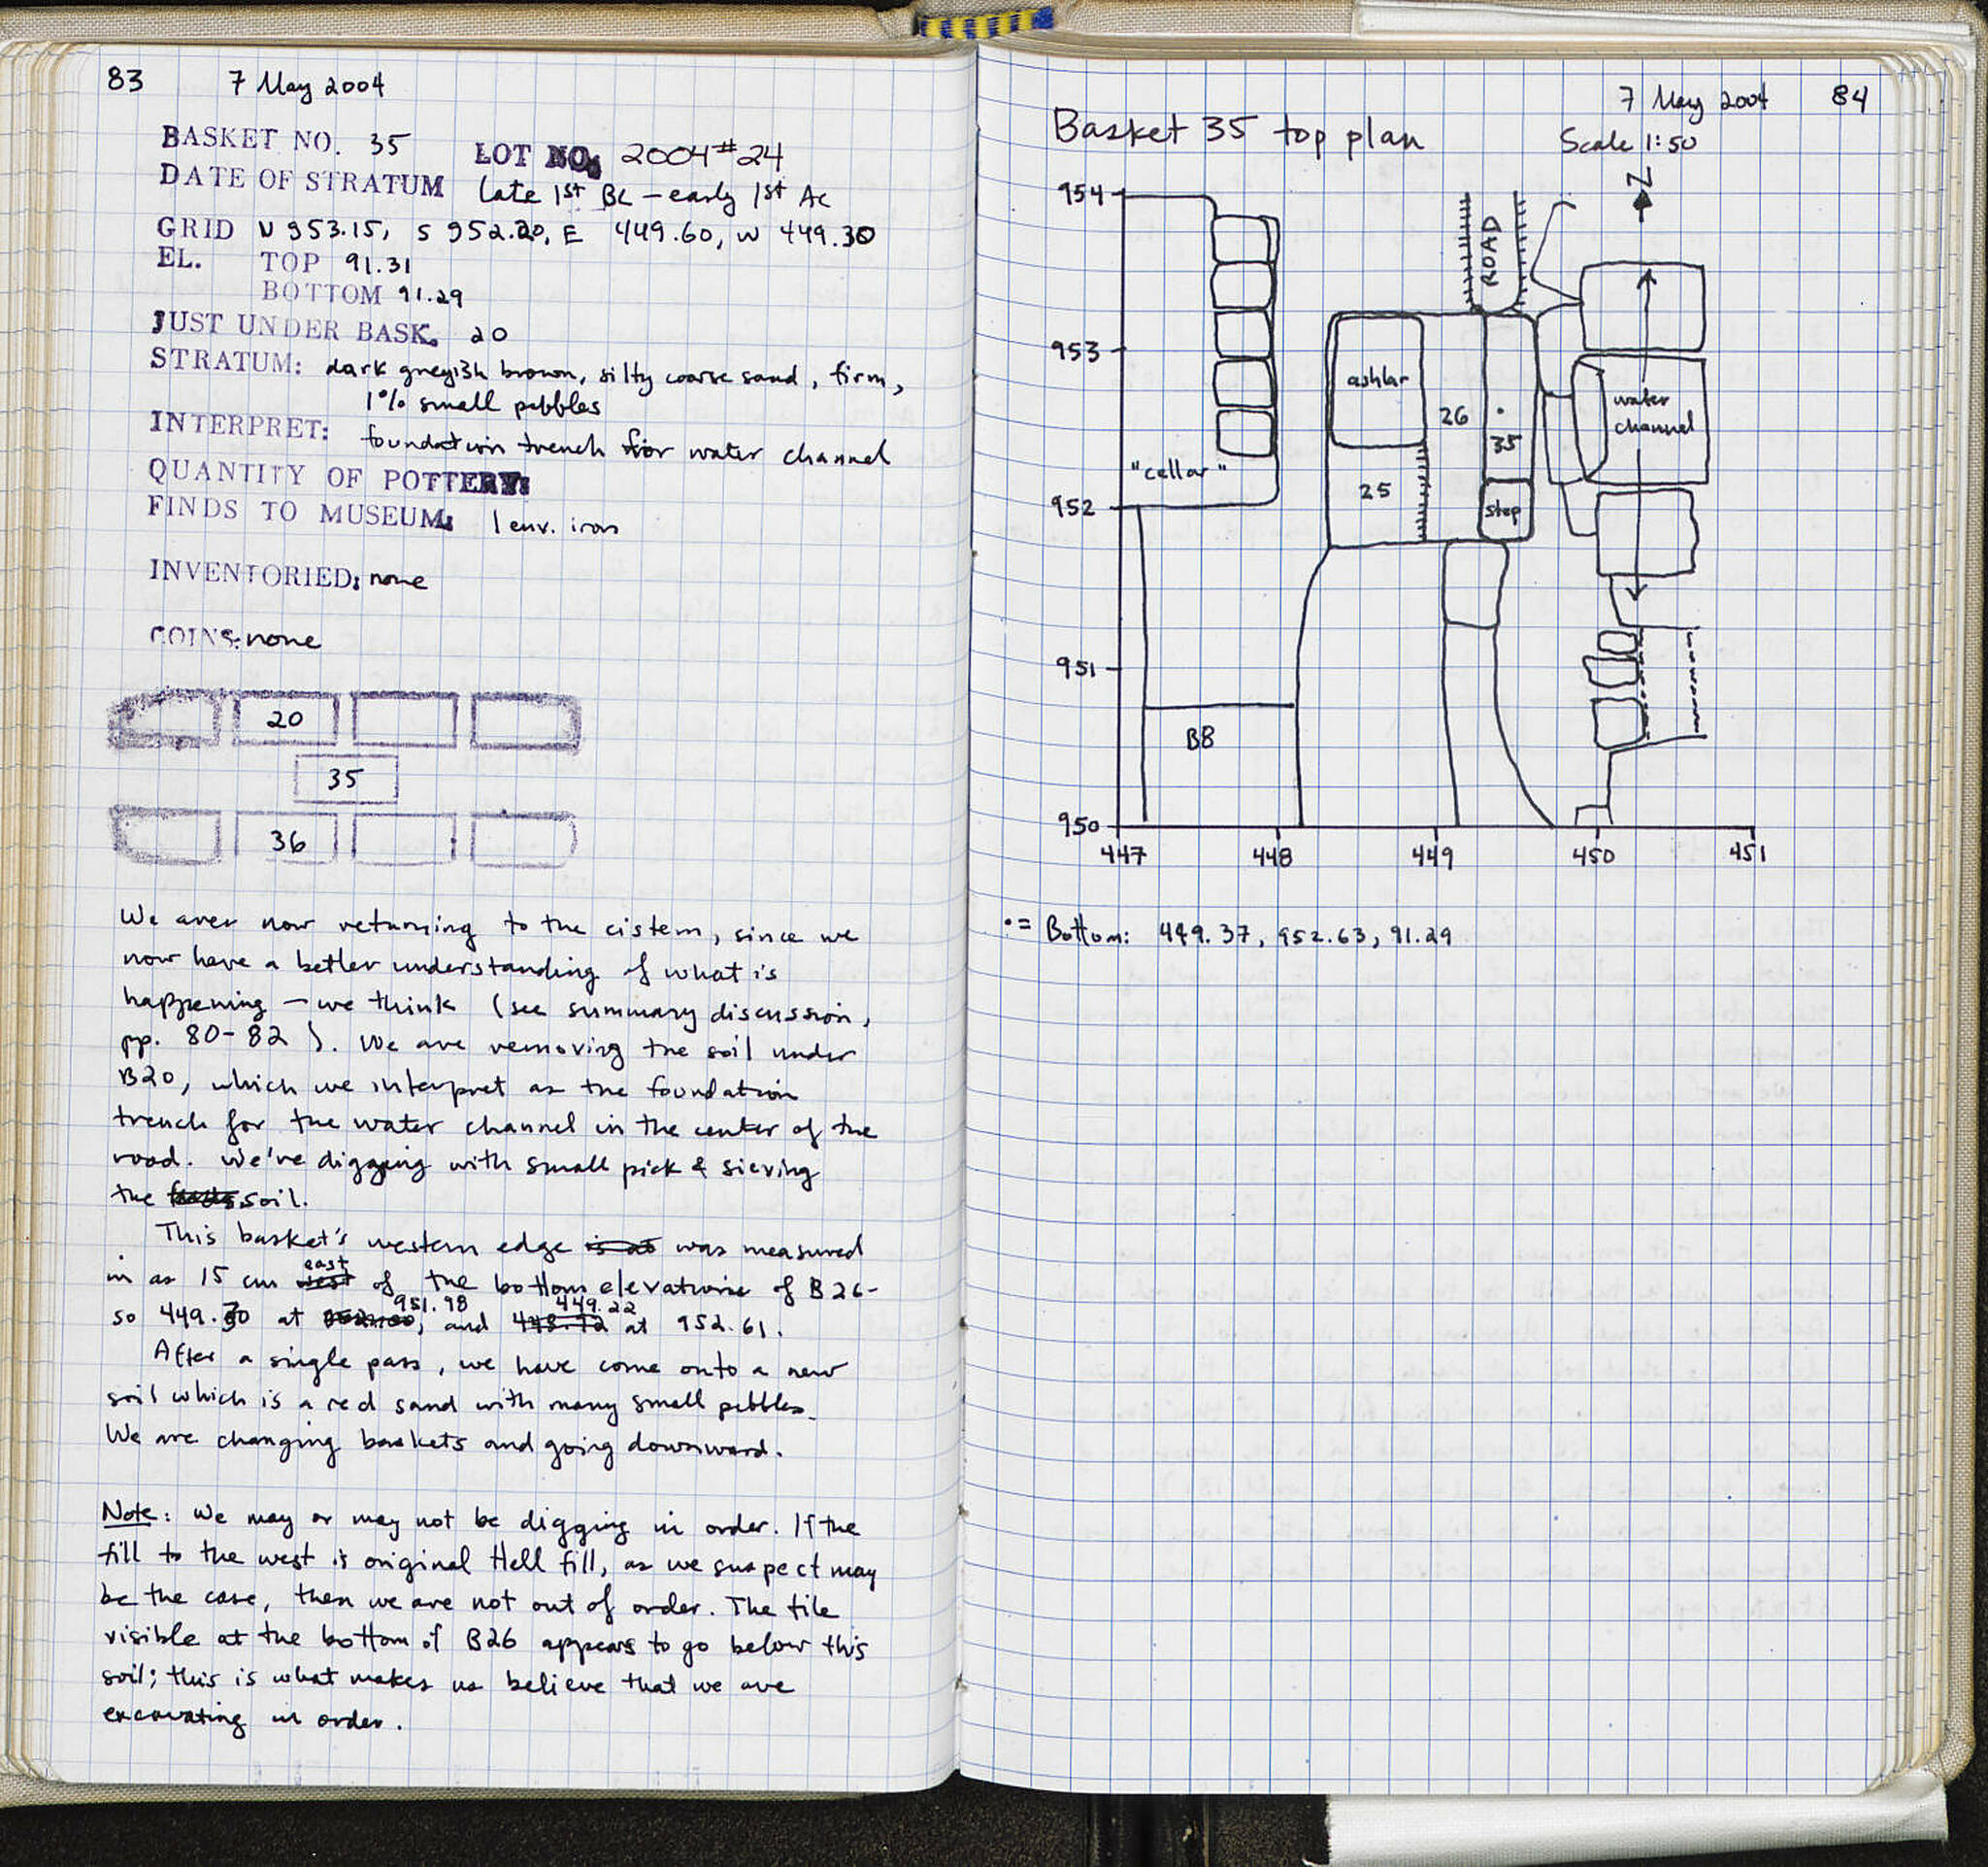 83 7 May 2004
BASKET NO. 35 LOT NO. 2004#24
DATE OF STRATUM late 1st BC – early 1st AC
GRID N 953.15, S 952.20, E 449.60, W 449.30
EL. TOP 91.31
BOTTOM 91.29
JUST UNDER BASK. 20
STRATUM: dark greyish brown, silty coarse sand, firm,
1% small pebbles
INTERPRET: foundation trench for water channel
QUANTITY OF POTTERY:
FINDS TO MUSEUM: 1 env. iron
INVENTORIED: none
COINS: none
20
35
36
We aver now returning to the cistern, since we
now have a better understanding of what is
happening – we think (see summary discussion,
pp. 80-82). We are removing the soil under
B20, which we interpret as the foundation
trench for the water channel in the center of the
road. We've digging with small pick & sieving
the soil.
This basket's western edge is at was measured
in as 15 cm east of the bottom elevations of B26-
so 449.30 at 951.98, and 449.22 at 952.61.
After a single pass, we have come onto a new
soil which is a red sand with many small pebbles.
We are changing baskets and going downward.
Note: We may or may not be digging in order. If the
fill to the west is original Hell fill, as we suspect may
be the case, then we are not out of order. The tile
visible at the bottom of B26 appears to go below this
soil; this is what makes us believe that we are
excavating in order.
7 May 2004 84
Basket 35 top plan
Scale 1:50
N
954
ROAD
953
ashlar
water
channel
26
35
"cellar"
25
952
step
951
B8
950
447 448 449 450 451
•= Bottom: 449.37, 952.63, 91.29